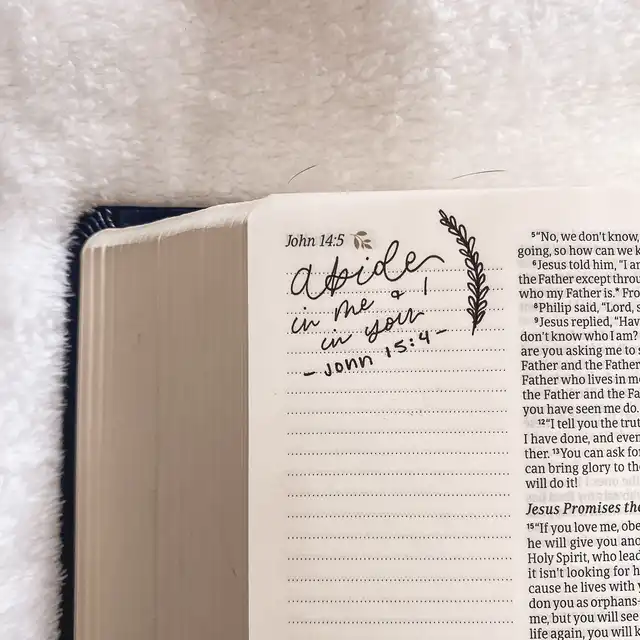 John 14:5
abide
in me & I
in you
- John 15:4 -
5“No, we don't know,
going, so how can we k
6Jesus told him, “I a
the Father except throu
who my Father is.* Fro
8Philip said, “Lord, s
9Jesus replied, “Hav
don't know who I am?
are you asking me to s
Father and the Father
Father who lives in me
the Father and the Fa
you have seen me do.
12“I tell you the trut
I have done, and even
ther. 13You can ask fo
can bring glory to the
will do it!
Jesus Promises the
15“If you love me, obe
he will give you ano
Holy Spirit, who lead
it isn't looking for h
cause he lives with y
don you as orphans–
me, but you will see
life again, you will k